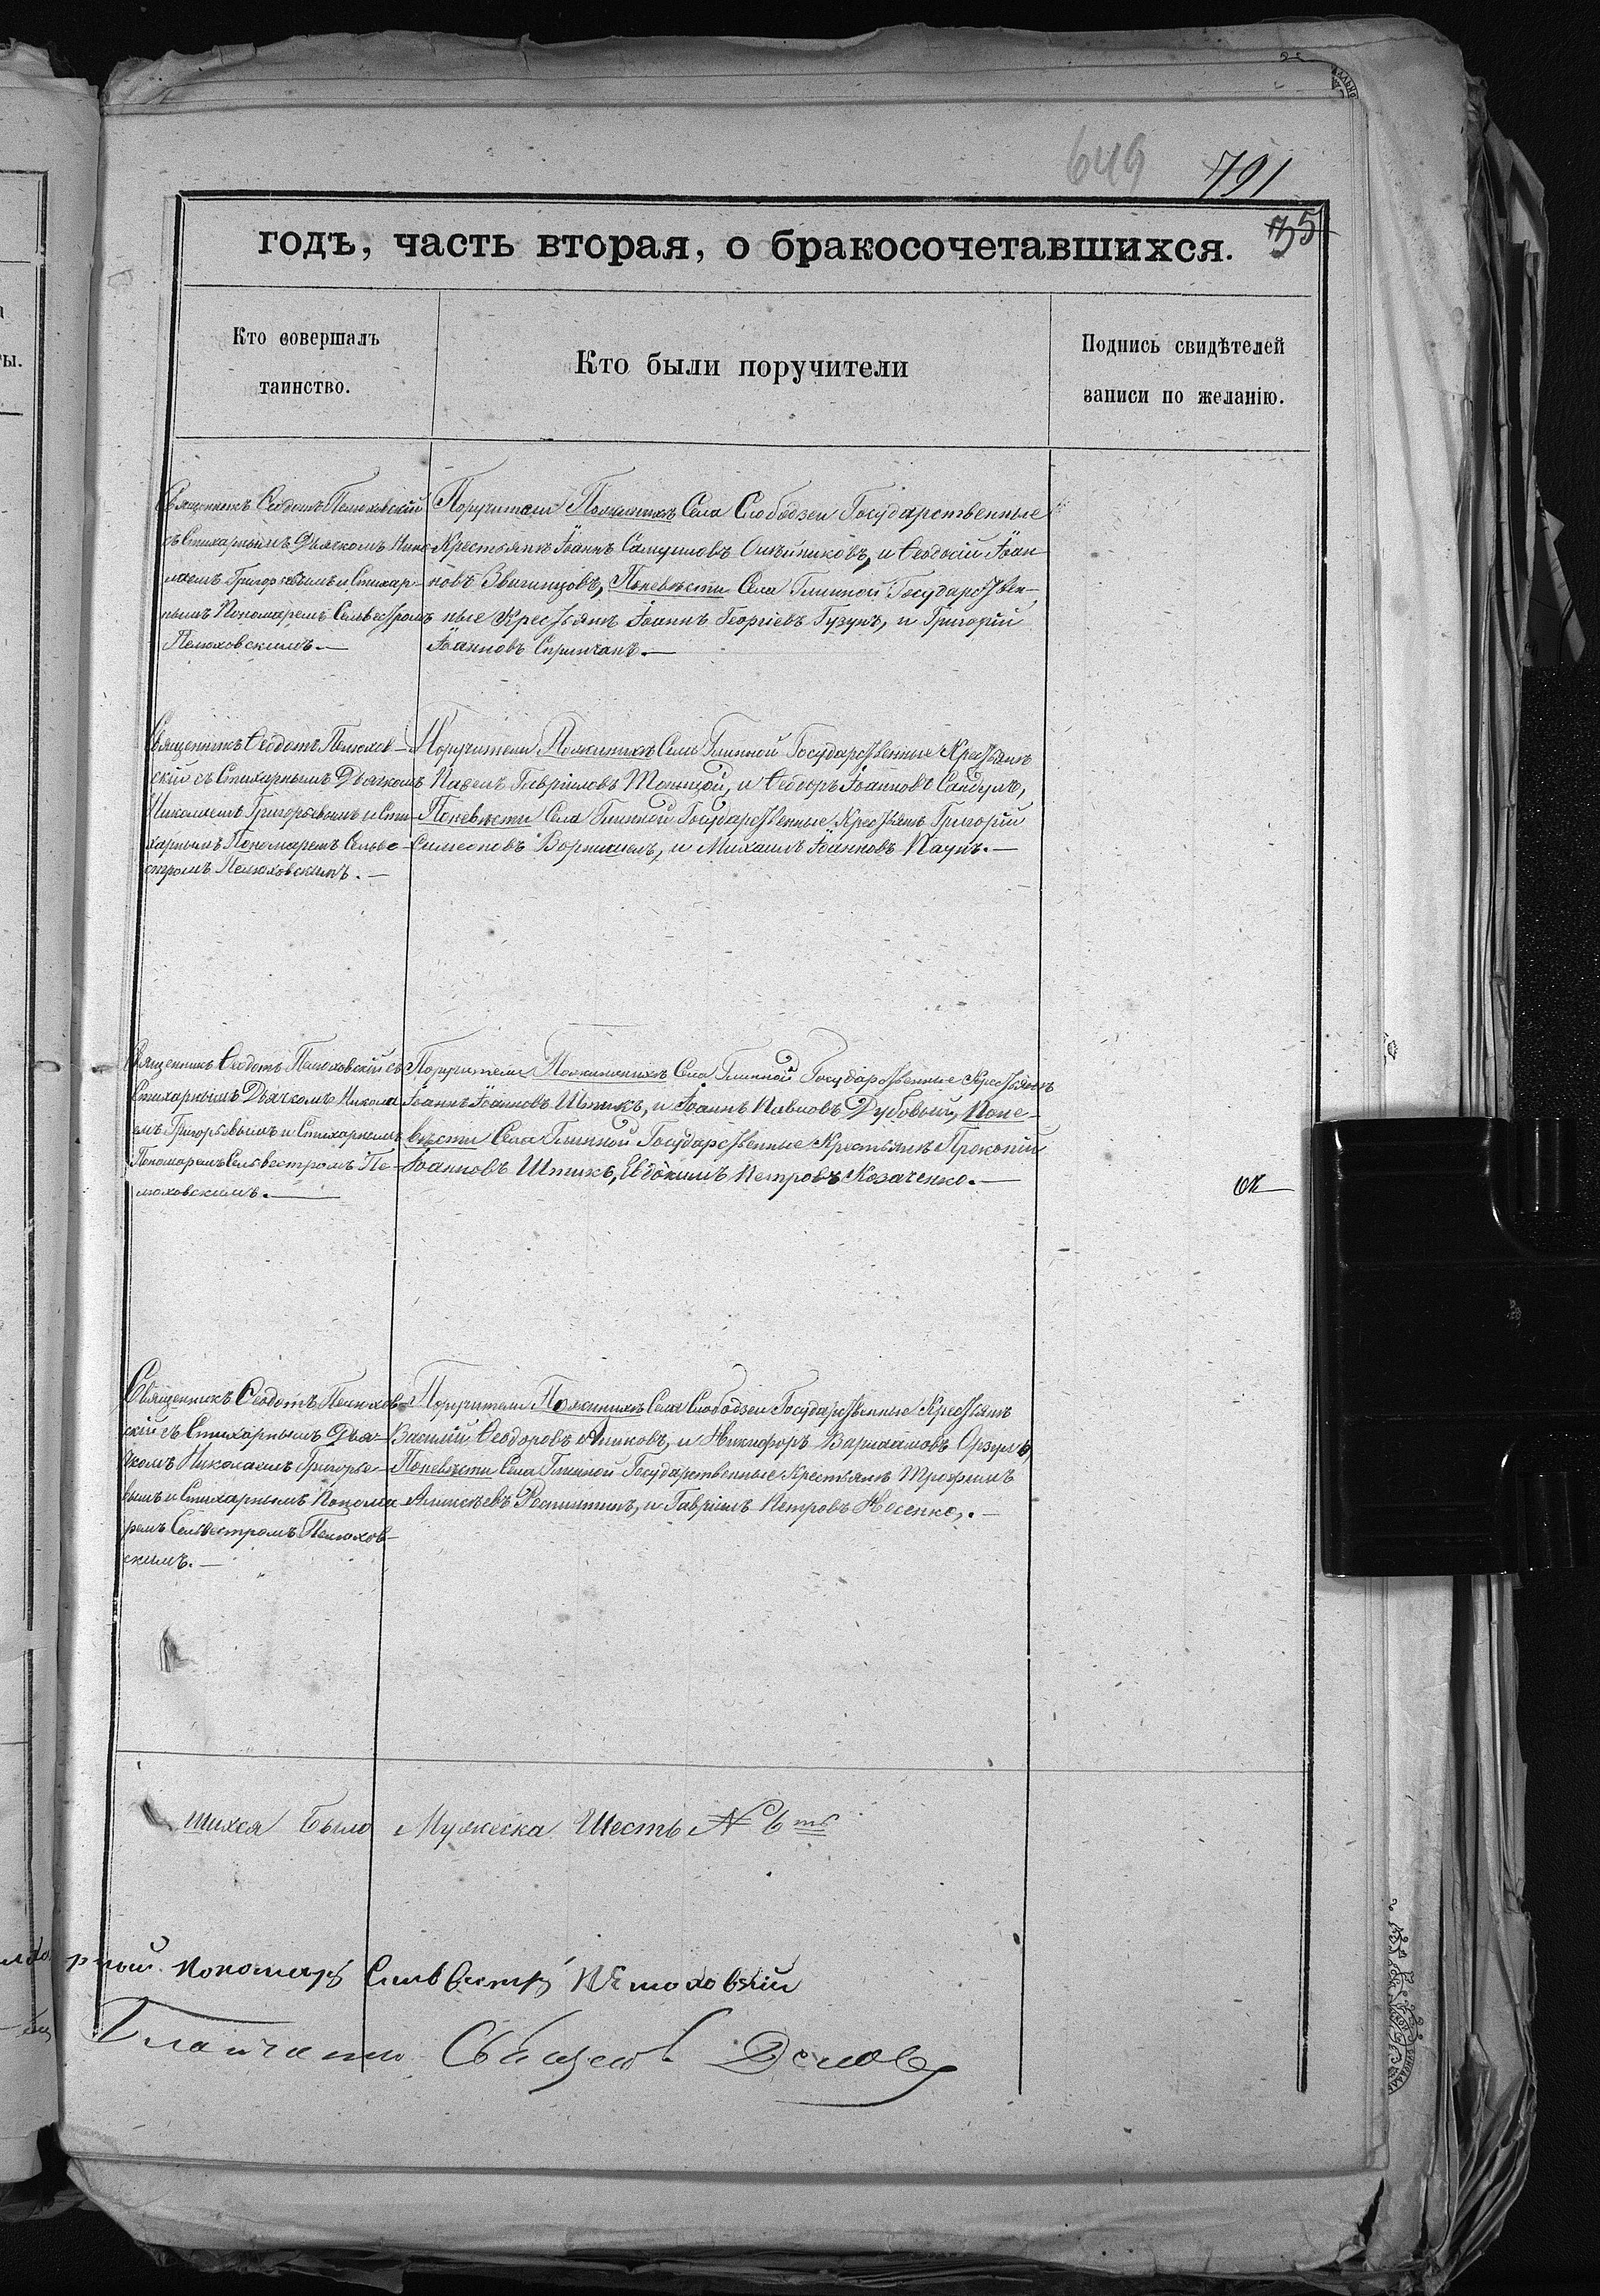 649 791
35
годъ, часть вторая, о бракосочетавшихся.
Кто совершалъ
таинство.
Кто были поручители
Подпись свидѣтелей
записи по желанію.
Священникъ Ѳеодотъ Пелюховскій
съ Стихарнымъ Дьячкомъ Нико
лаемъ Григорьевымъ и Стихар-
нымъ Пономаремъ Сельвестромъ
Пелюховскимъ.—
Поручители По женихѣ Села Слободзеи Государственные
Крестьяне Іоаннъ Самуиловъ Олѣйниковъ, и Ѳеодосій Іоан
новъ Звѣгинцовъ, По невѣсти Села Глинной Государствен-
ные Крестьяне Іоаннъ Георгіевъ Гузунъ, и Григорій
Іоанновъ Спринчанъ.—
Священникъ Ѳеодотъ Пелюхов-
скій съ Стихарнымъ Дьячкомъ
Николаемъ Григорьевымъ и Сти-
харнымъ Пономаремъ Сельве-
стромъ Пелюховскимъ.—
Поручители По женихѣ Села Глинной Государственные Крестьяне
Павелъ Гавріиловъ и Ѳеодоръ Іоанновъ Сандулъ,
По невѣсти Села Глинной Государственные Крестьяне Григорій
Симеоновъ и Михаилъ Іоанновъ Паунъ.—
Священникъ Ѳеодотъ Пелюховскій съ
Стихарнымъ Дьячкомъ Никола
емъ Григорьевымъ и Стихарнымъ
Пономаремъ Сельвестромъ Пе-
люховскимъ.—
Поручители По женихѣ Села Глинной Государственные Крестьяне
Іоаннъ Іоанновъ Штикъ, и Іоаннъ Павловъ Дубовый, По не-
вѣсти Села Глинной Государственные Крестьяне Прокопій
Іоанновъ Штикъ, Евдокимъ Петровъ Козаченко.—
Священникъ Ѳеодотъ Пелюхов-
скій съ Стихарнымъ Дья-
чкомъ Николаемъ Григорье-
вымъ и Стихарнымъ Понома
ремъ Сельвестромъ Пелюхов-
скимъ.—
Поручители По женихѣ Села Слободзеи Государственные Крестьяне
Василій Ѳеодоровъ и Никифоръ Варлаамовъ
По невѣсти Села Глинной Государственные Крестьяне Трофимъ
Алексѣевъ и Гавріилъ Петровъ Носенко.—
шихся Было Мужеска Шесть № 6ть
рной пономарь Сильвестръ Пелюховскій